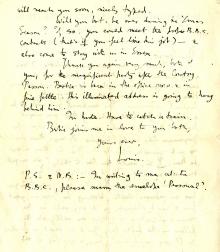 will reach you soon, nicely typed.
Will you both be over during the Xmas
Season? If so, you could meet the B.B.C.
contacts (that's if you feel like this job) —
also come to stay with us in Essex.
Thank you again very much, both of
you, for the magnificent party after the
Bertie is here in the office now
his The illuminated address is going to hang
behind him.
In haste. Have to catch a train.
Bertie joins me in love to you both,
Yours ever,
Louis.
P.S. & N.B.:- In writing to me at the
B.B.C., please mark the envelope 'Personal'.